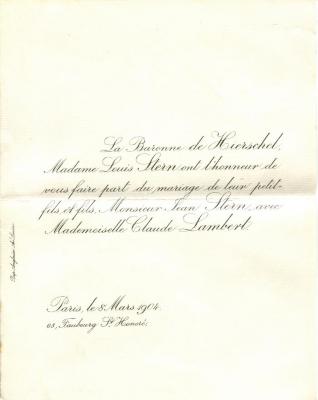 La Baronne de Hierschel,
Madame Louis Stern ont l'honneur de
vous faire part du mariage de leur petit-
fils et fils, Monsieur Jean Stern, avec
Mademoiselle Claude Lambert.
Paris, le 8 Mars 1904.
68, Faubourg St Honoré.